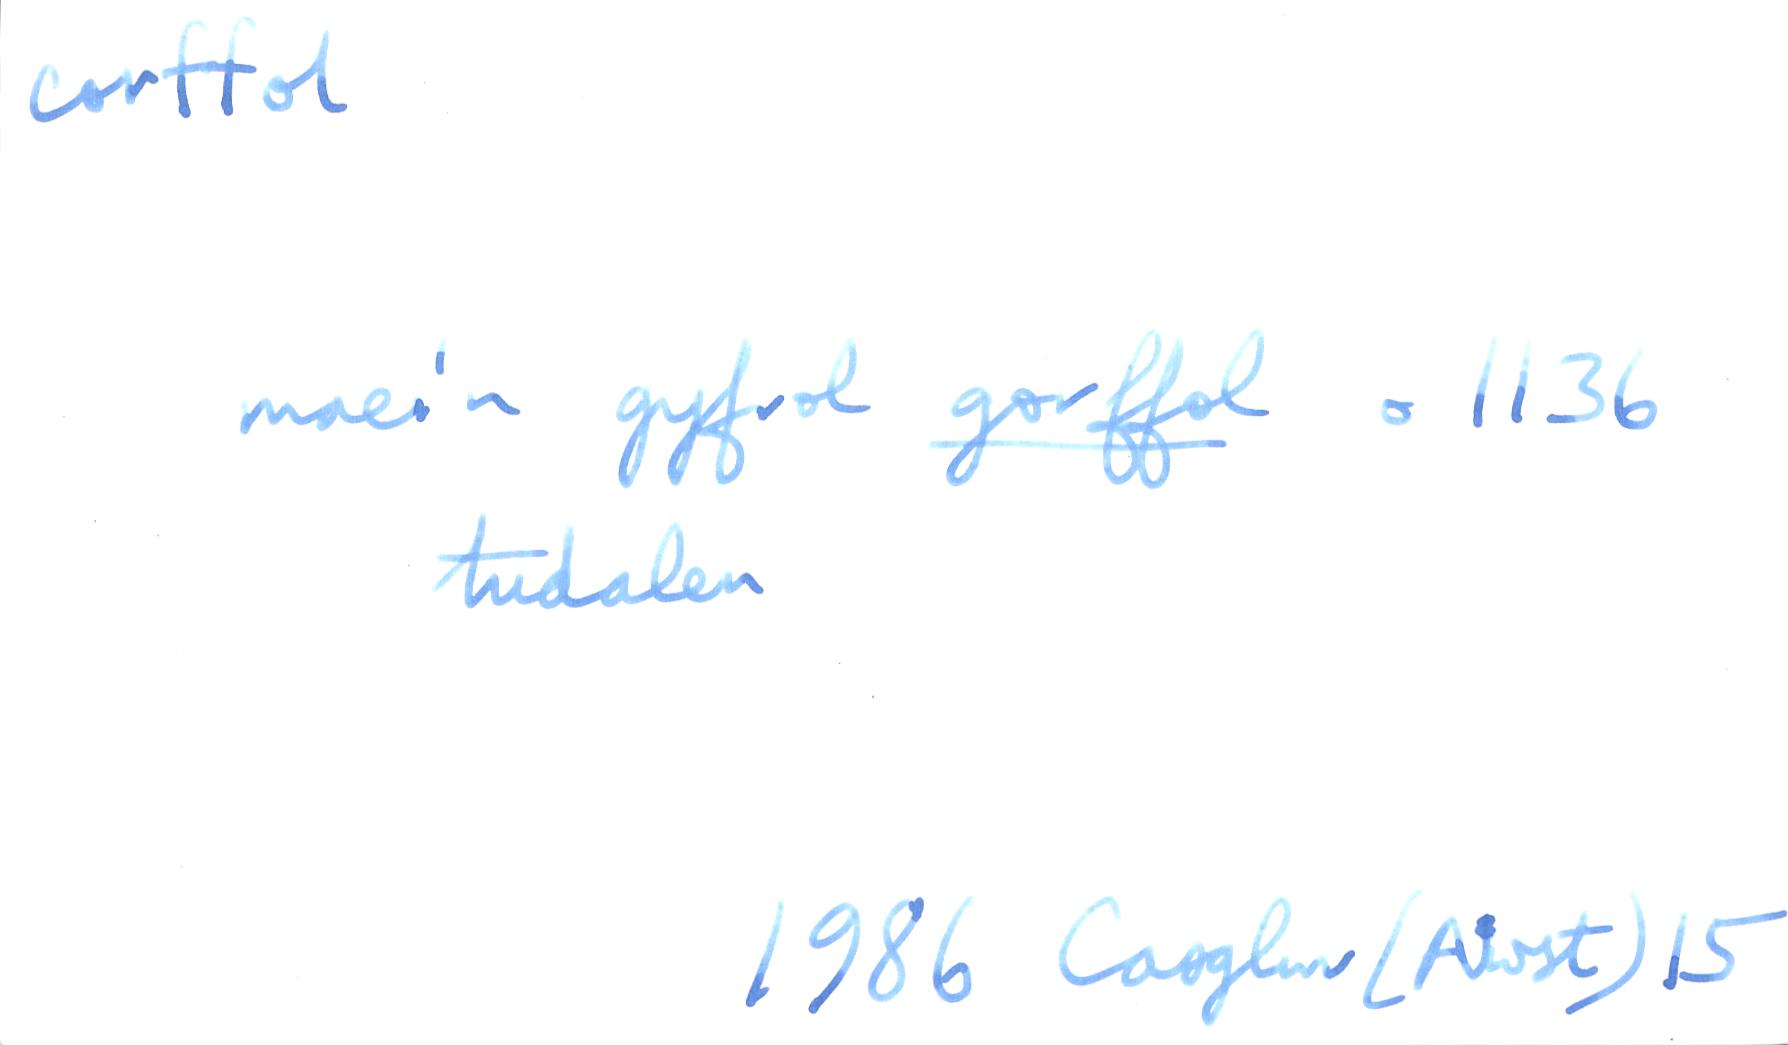 corffol
mae'n gyfrol gorffol o 1136
tudalen
1986 Casglwr (Awst) 15